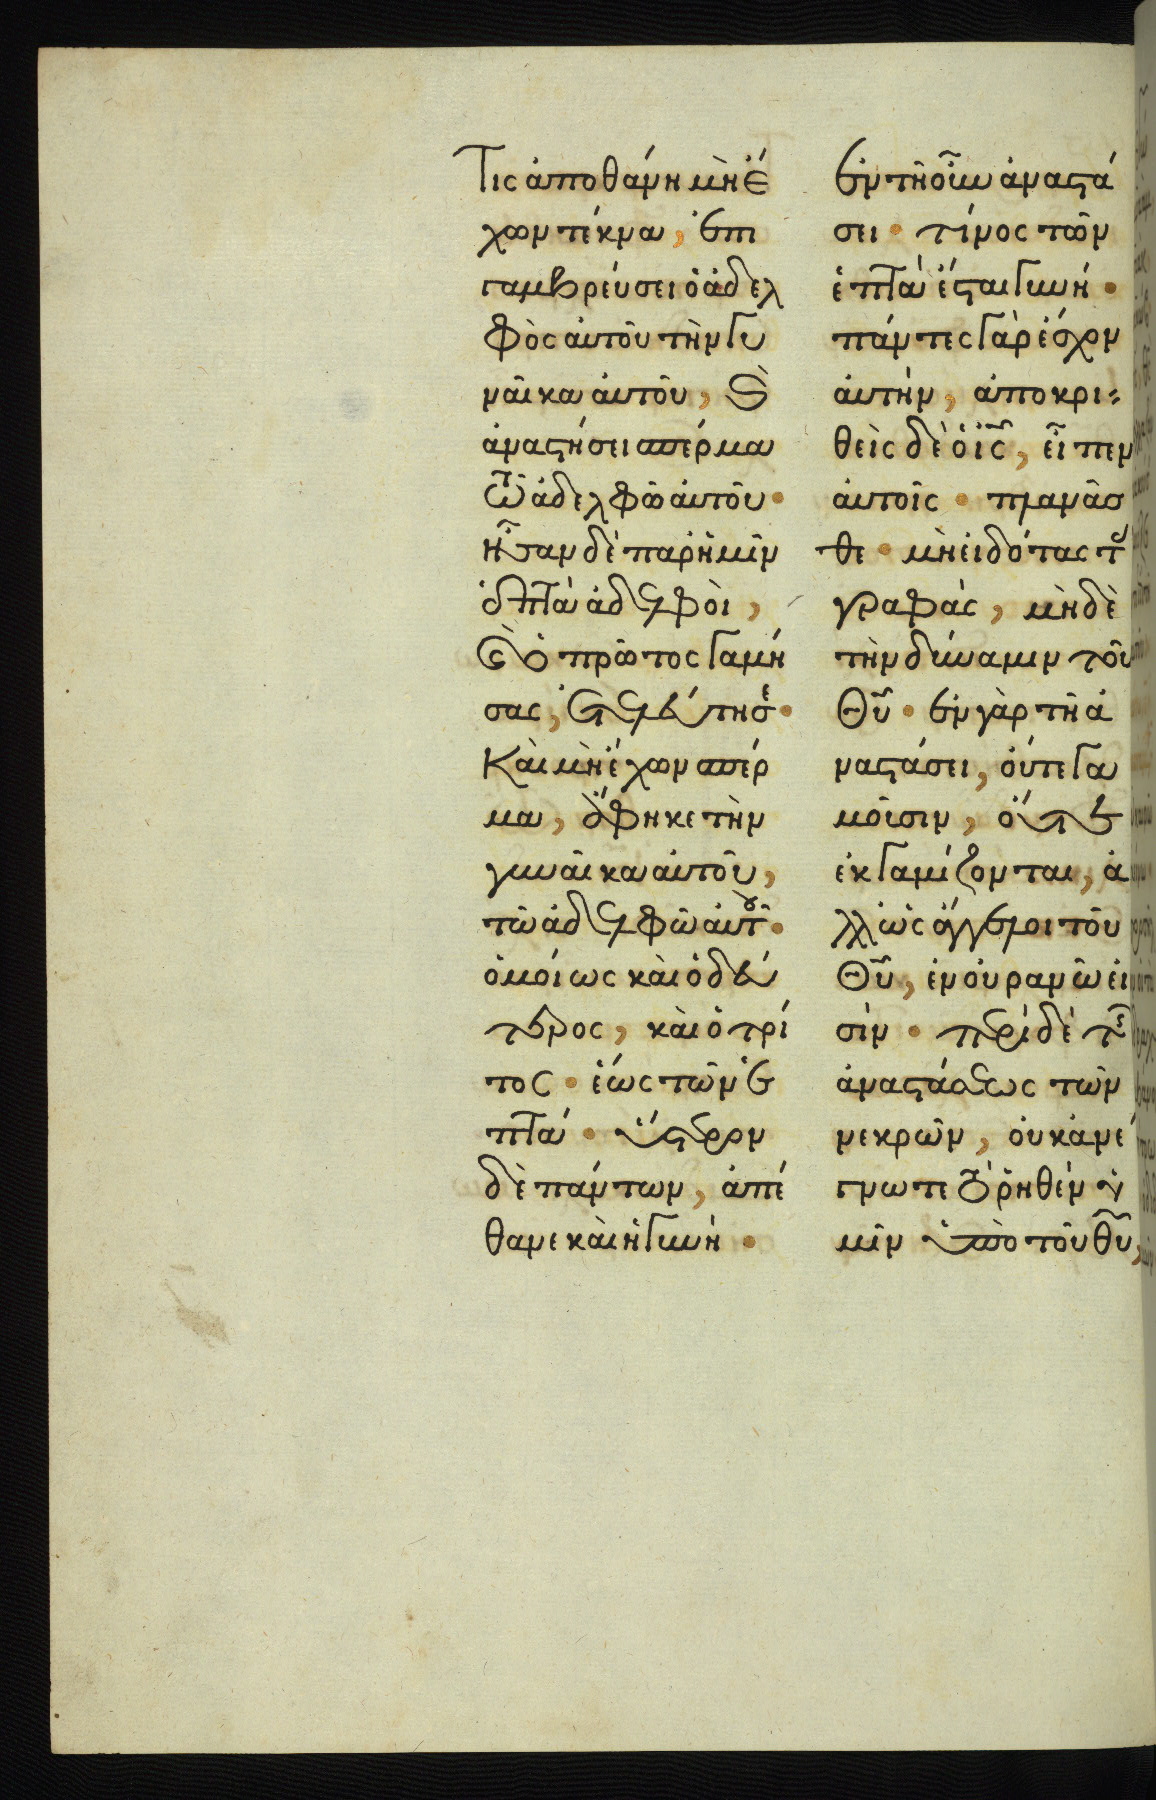 Τις ἀποθάνη μὴ ἔ
χων τέκνα, ἐπι
γαμβρεύσει ὁ ἀδελ
φὸς αὐτοῦ τὴν γυ
ναῖκα αὐτοῦ, ϗ
ἀναστήσει σπέρμα
τῶ ἀδελφῶ αὐτοῦ·
ἦσαν δὲ παρ ἡμῖν
ἑπτὰ ἀδελφοὶ,
ϗ ὁ πρῶτος γαμή
σας, ἐτελεύτησε·
Καὶ μὴ ἔχων σπέρ
μα, ἀφῆκε τὴν
γυναῖκα αὐτοῦ,
τῶ ἀδελφῶ αὐτοῦ·
ὁμοίως καὶ ὁ δεύ
τερος, καὶ ὁ τρί
τος· ἕως τῶν ἑ
πτά· ὕστερον
δὲ πάντων, ἀπέ
θανε καὶ ἡ γυνή·
ἐν τῆ οὖν ἀναστά
σει· τίνος τῶν
ἑπτὰ ἔσται γυνή·
πάντες γὰρ ἔσχον
αὐτήν, ἀποκρι
θεὶς δὲ ὁ ις, εἶπεν
αὐτοῖς· πλανᾶσ
θε· μὴ εἰδότας τὰς
γραφάς, μηδὲ
τὴν δύναμιν τοῦ
Θυ· ἐν γὰρ τῆ ἀ
ναστάσει, οὔτε γα
μοῦσιν, οὔτε
ἐκγαμίζονται, ἀ
λλ ὡς ἄγγελοι τοῦ
Θυ, ἐν οὐρανῶ εἰ
σίν· περὶ δὲ τῆς
ἀναστάσεως τῶν
νεκρῶν, οὐκ ἀνέ
γνωτε τὸ ῥηθὲν ὑ
μῖν ὑπὸ τοῦ θυ,